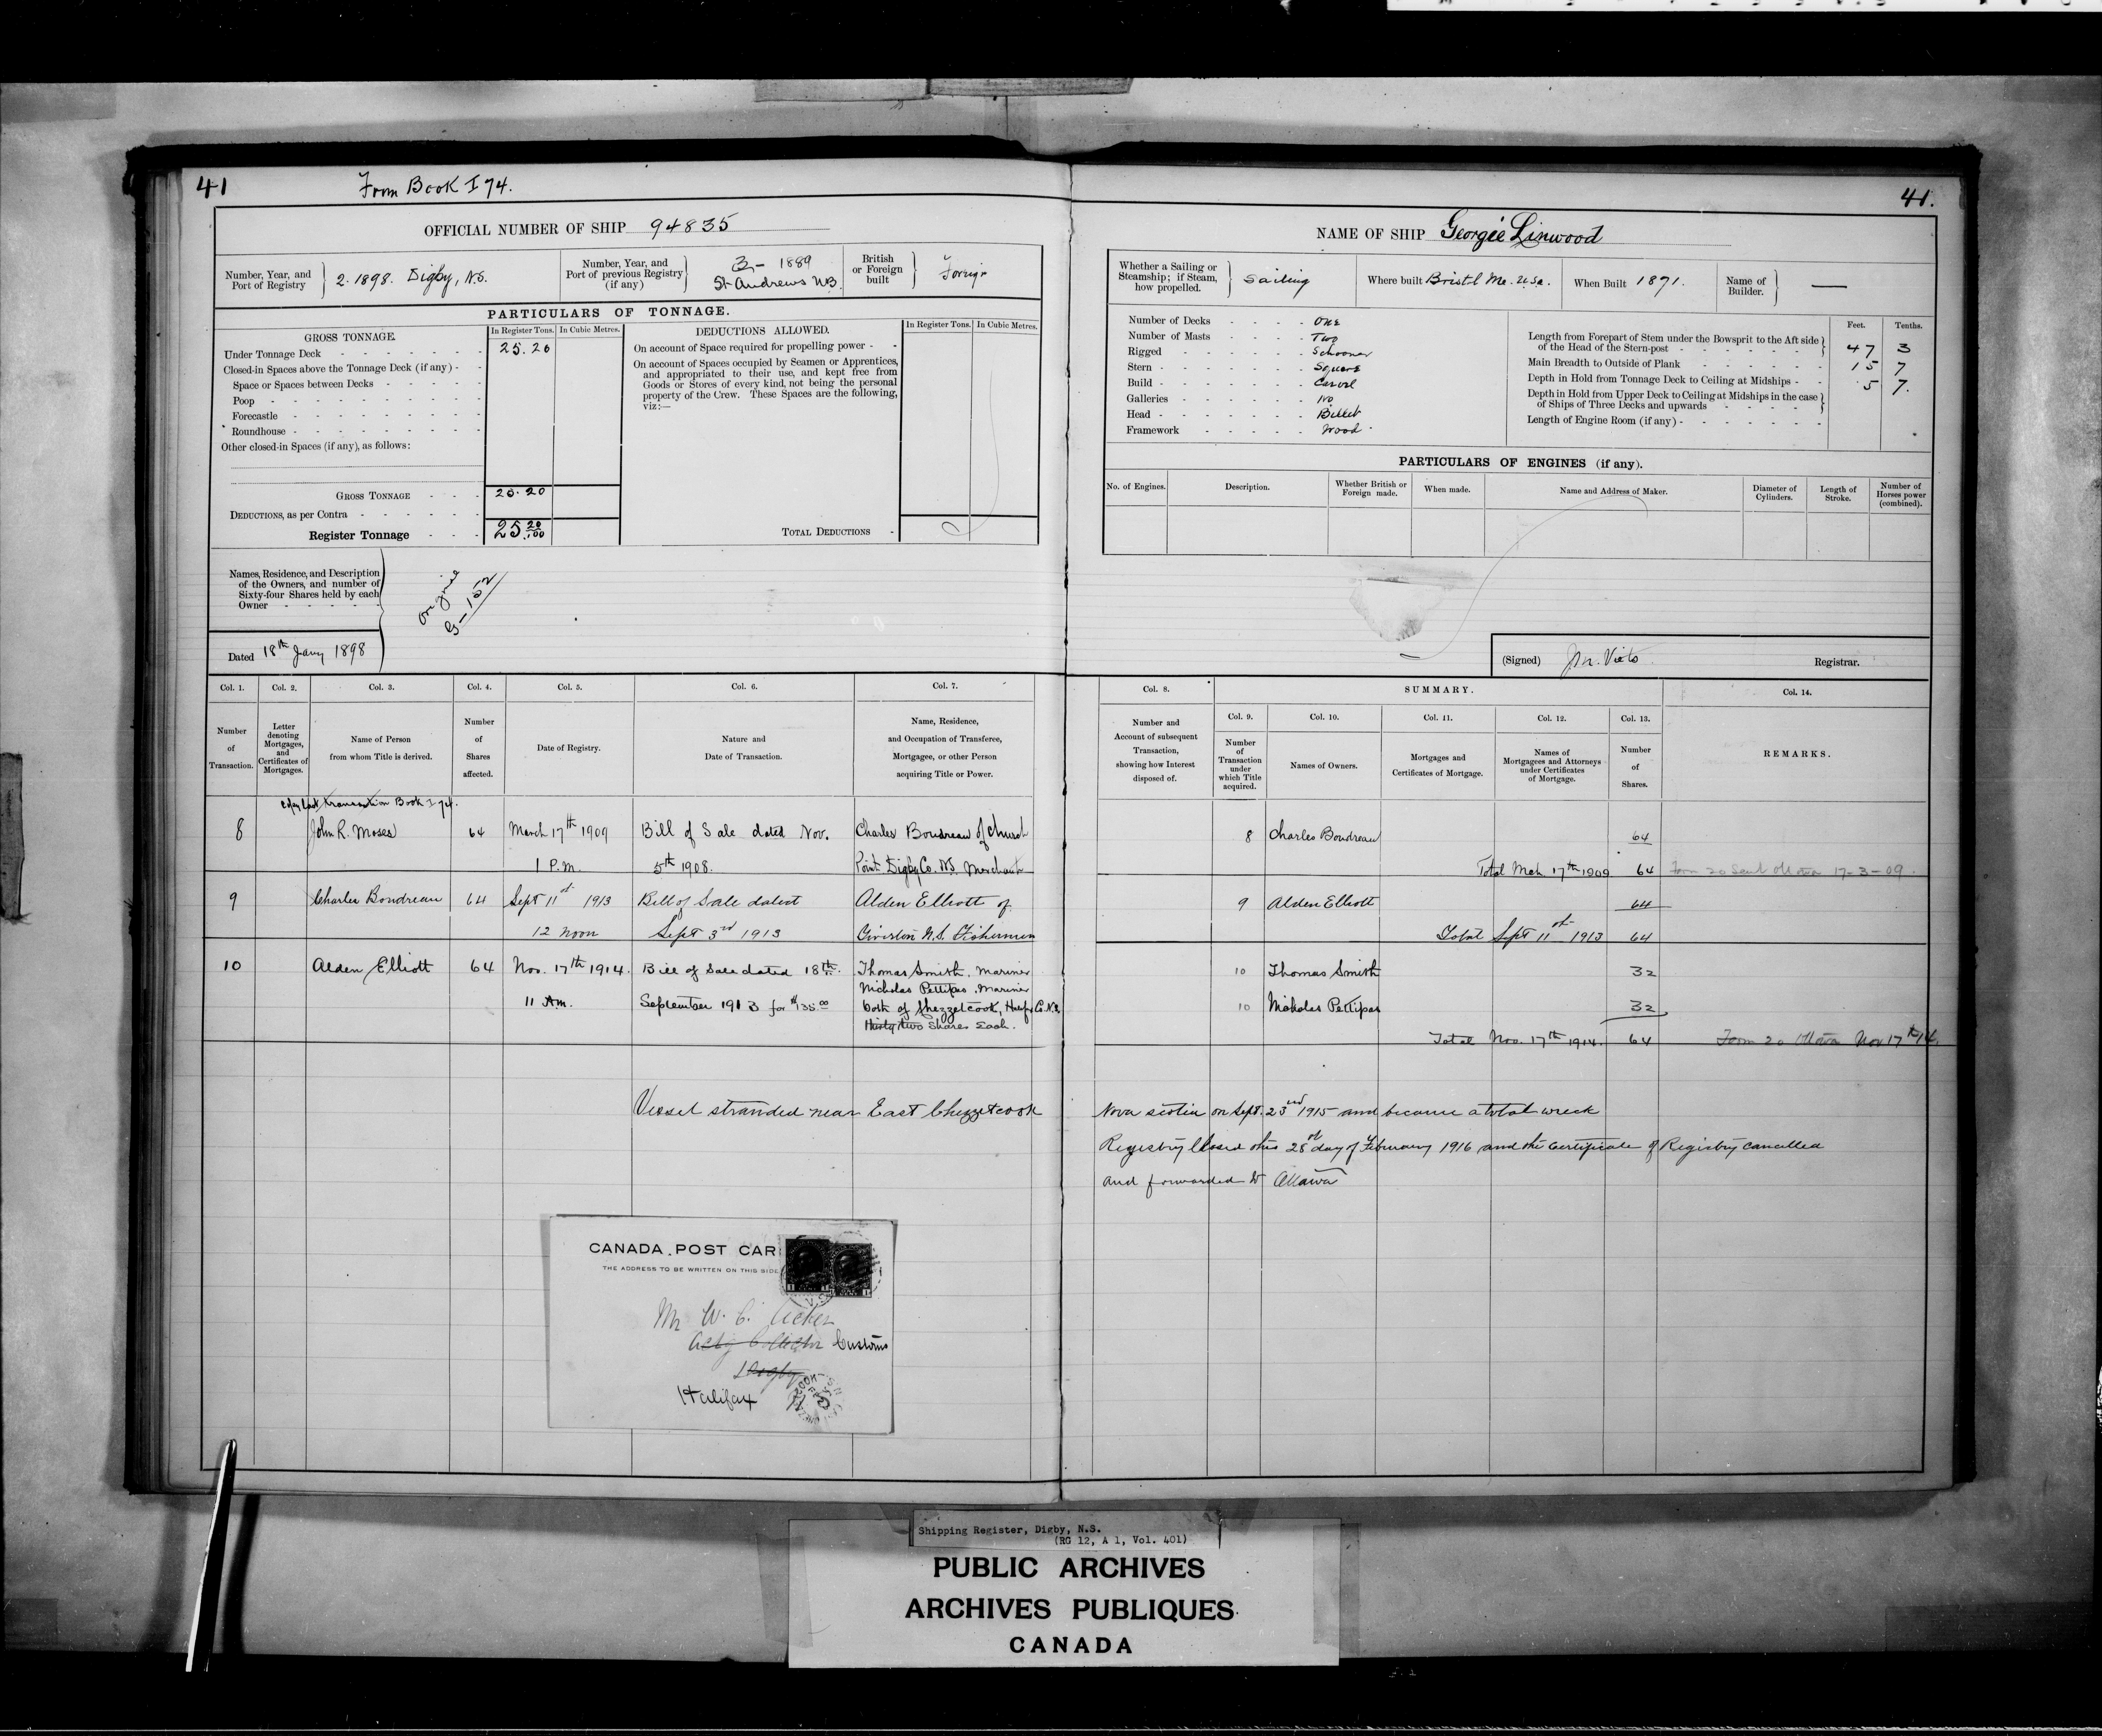 41
From Book I 74.
41.
OFFICIAL NUMBER OF SHIP 94835
NAME OF SHIP Georgie Linwood
Number, Year, and Port of Registry
2. 1898. Digby, N.S.
Number, Year, and Port of previous Registry (if any)
3 - 1889
St Andrews N.B.
British or Foreign built
Foreign
Whether a Sailing or Steamship; if Steam, how propelled.
Sailing
Where built Bristl Me. U.Sa.
When Built 1871.
Name of Builder.
PARTICULARS OF TONNAGE.
GROSS TONNAGE.
In Register Tons.
In Cubic Metres.
Under Tonnage Deck 25.20
Closed-in Spaces above the Tonnage Deck (if any) -
Space or Spaces between Decks
Poop
Forecastle
Roundhouse
Other closed-in Spaces (if any), as follows:
GROSS TONNAGE 25.20
DEDUCTIONS, as per Contra
Register Tonnage 25 20/100
DEDUCTIONS ALLOWED.
In Register Tons.
In Cubic Metres.
On account of Space required for propelling power -
On account of Spaces occupied by Seamen or Apprentices,
and appropriated to their use, and kept free from
Goods or Stores of every kind, not being the personal
property of the Crew. These Spaces are the following,
viz:—
TOTAL DEDUCTIONS
Number of Decks One
Number of Masts Two
Rigged Schooner
Stern Square
Build Carvel
Galleries No
Head Billet
Framework Wood
Feet. Tenths.
Length from Forepart of Stem under the Bowsprit to the Aft side
of the Head of the Stern-post 47 3
Main Breadth to Outside of Plank 15 7
Depth in Hold from Tonnage Deck to Ceiling at Midships 5 7.
Depth in Hold from Upper Deck to Ceiling at Midships in the case
of Ships of Three Decks and upwards
Length of Engine Room (if any)
PARTICULARS OF ENGINES (if any).
No. of Engines.
Description.
Whether British or Foreign made.
When made.
Name and Address of Maker.
Diameter of Cylinders.
Length of Stroke.
Number of Horses power (combined).
Names, Residence, and Description
of the Owners, and number of
Sixty-four Shares held by each
Owner
Original
Dated 18th Jany 1898
(Signed) Registrar.
Col. 1.
Number of Transaction.
Col. 2.
Letter denoting Mortgages, and Certificates of Mortgages.
Col. 3.
Name of Person from whom Title is derived.
Col. 4.
Number of Shares affected.
Col. 5.
Date of Registry.
Col. 6.
Nature and Date of Transaction.
Col. 7.
Name, Residence, and Occupation of Transferee, Mortgagee, or other Person acquiring Title or Power.
Col. 8.
Number and Account of subsequent Transaction, showing how Interest disposed of.
SUMMARY.
Col. 9.
Number of Transaction under which Title acquired.
Col. 10.
Names of Owners.
Col. 11.
Mortgages and Certificates of Mortgage.
Col. 12.
Names of Mortgagees and Attorneys under Certificates of Mortgage.
Col. 13.
Number of Shares.
Col. 14.
REMARKS.
last transaction Book I 74.
8 John R. Moses 64 March 17th 1909 Bill of Sale dated Nov. Charles Boudreau of Church
1 P.M. 5th 1908. Point Digby Co. N.S. Merchant
8 Charles Boudreau 64
Total Mch 17th 1909 64 Form 20 Sent Ottawa 17-3-09.
9 Charles Boudreau 64 Sept 11th 1913 Bill of Sale dated Alden Elliott of
12 noon Sept 3rd 1913 N.S. Fisherman
9 Alden Elliott 64
Total Sept 11th 1913 64
10 Alden Elliott 64 Nov. 17th 1914. Bill of Sale dated 18th. Thomas Smith. Mariner
Nicholas Pettipas. Mariner
11 Am. September 1913 for $135.00 both of Chezzetcook, Co. N.S.
Thirty two Shares Each.
10 Thomas Smith 32
10 Nicholas Pettipas 32
Total Nov. 17th 1914. 64 Form 20 Ottawa Nov 17th 14.
Vessel stranded near East Chezzetcook Nova Scotia on Sept. 23rd 1915 and became a total wreck
Registry Closed this 28th day of February 1916 and the Certificate of Registry cancelled
and forwarded to Ottawa
CANADA POST CAR
THE ADDRESS TO BE WRITTEN ON THIS SIDE
Mr W. C.
Actg Collector Customs
Digby
Halifax
Shipping Register, Digby, N.S.
(RG 12, A 1, Vol. 401)
PUBLIC ARCHIVES
ARCHIVES PUBLIQUES
CANADA